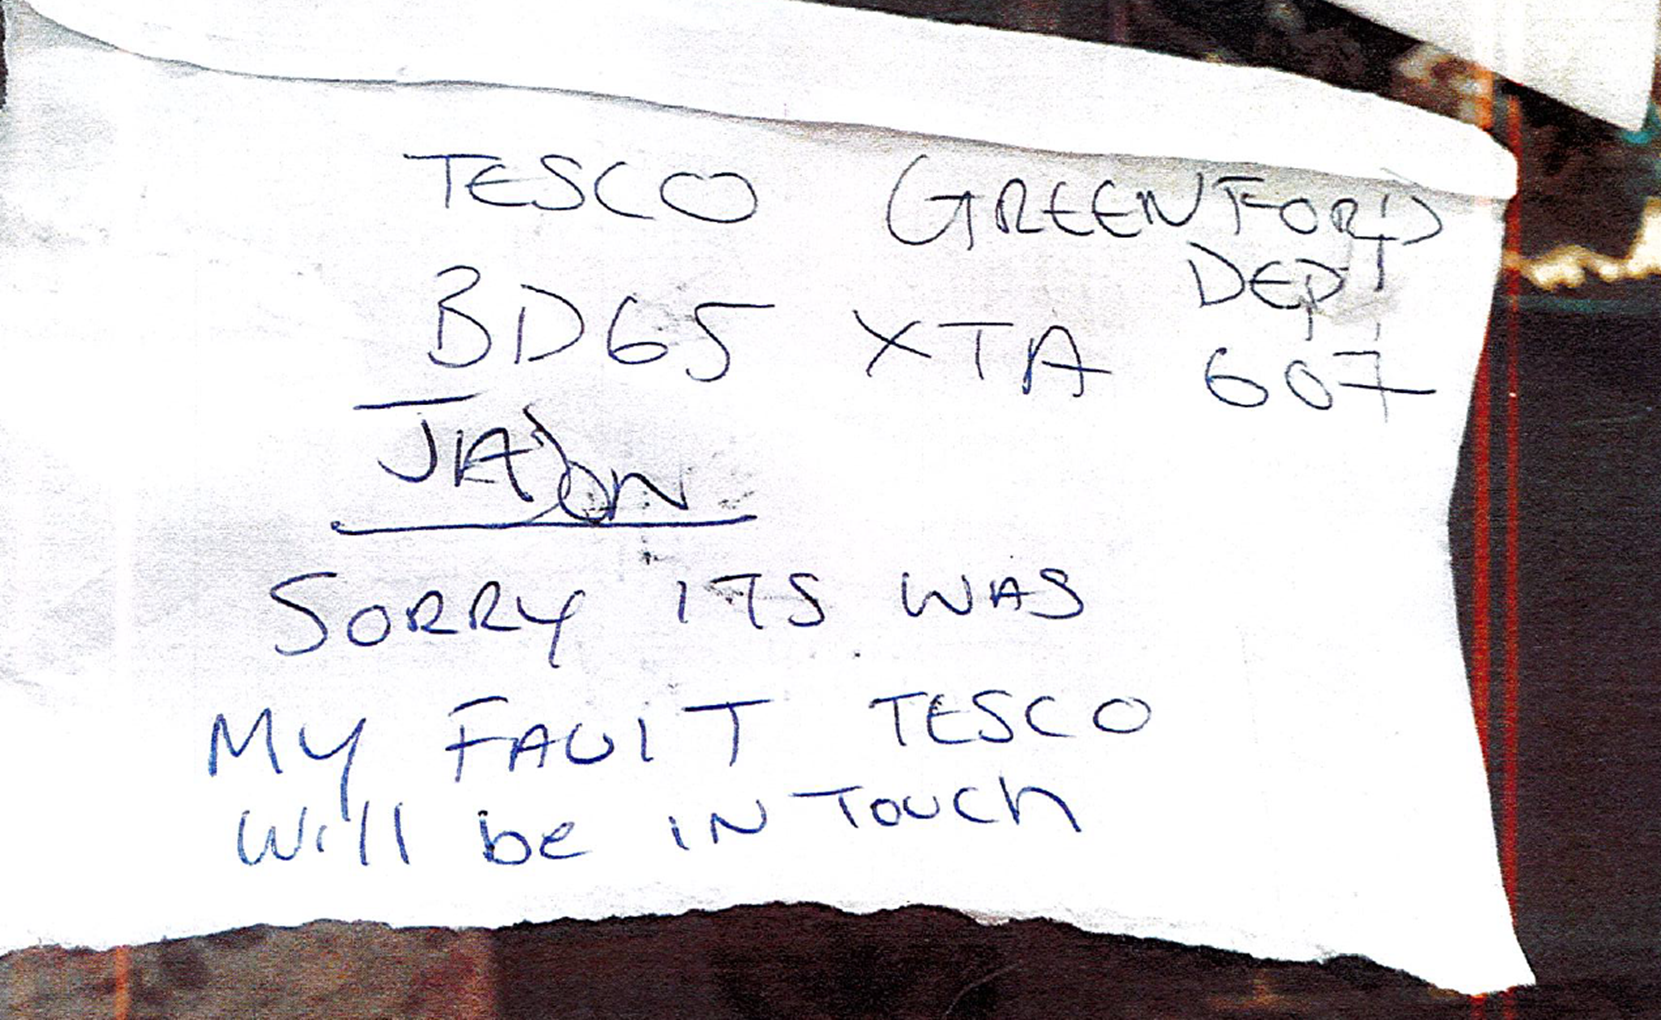 TESCO GREENFORD
DEPT
BD65 XTA 607
JASON
SORRY ITS WAS
MY FAULT TESCO
Will be IN TOUCH